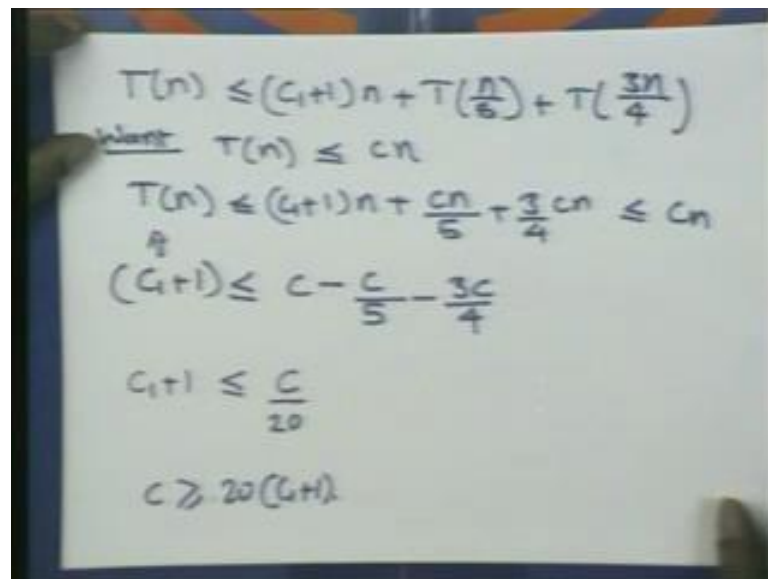 T(n) ≤ (C₁+1)n + T(n/5) + T(3n/4)
Want T(n) ≤ cn
T(n) ≤ (C₁+1)n + cn/5 + 3/4 cn ≤ cn
(C₁+1) ≤ c - c/5 - 3c/4
C₁+1 ≤ c/20
c ≥ 20(C₁+1)